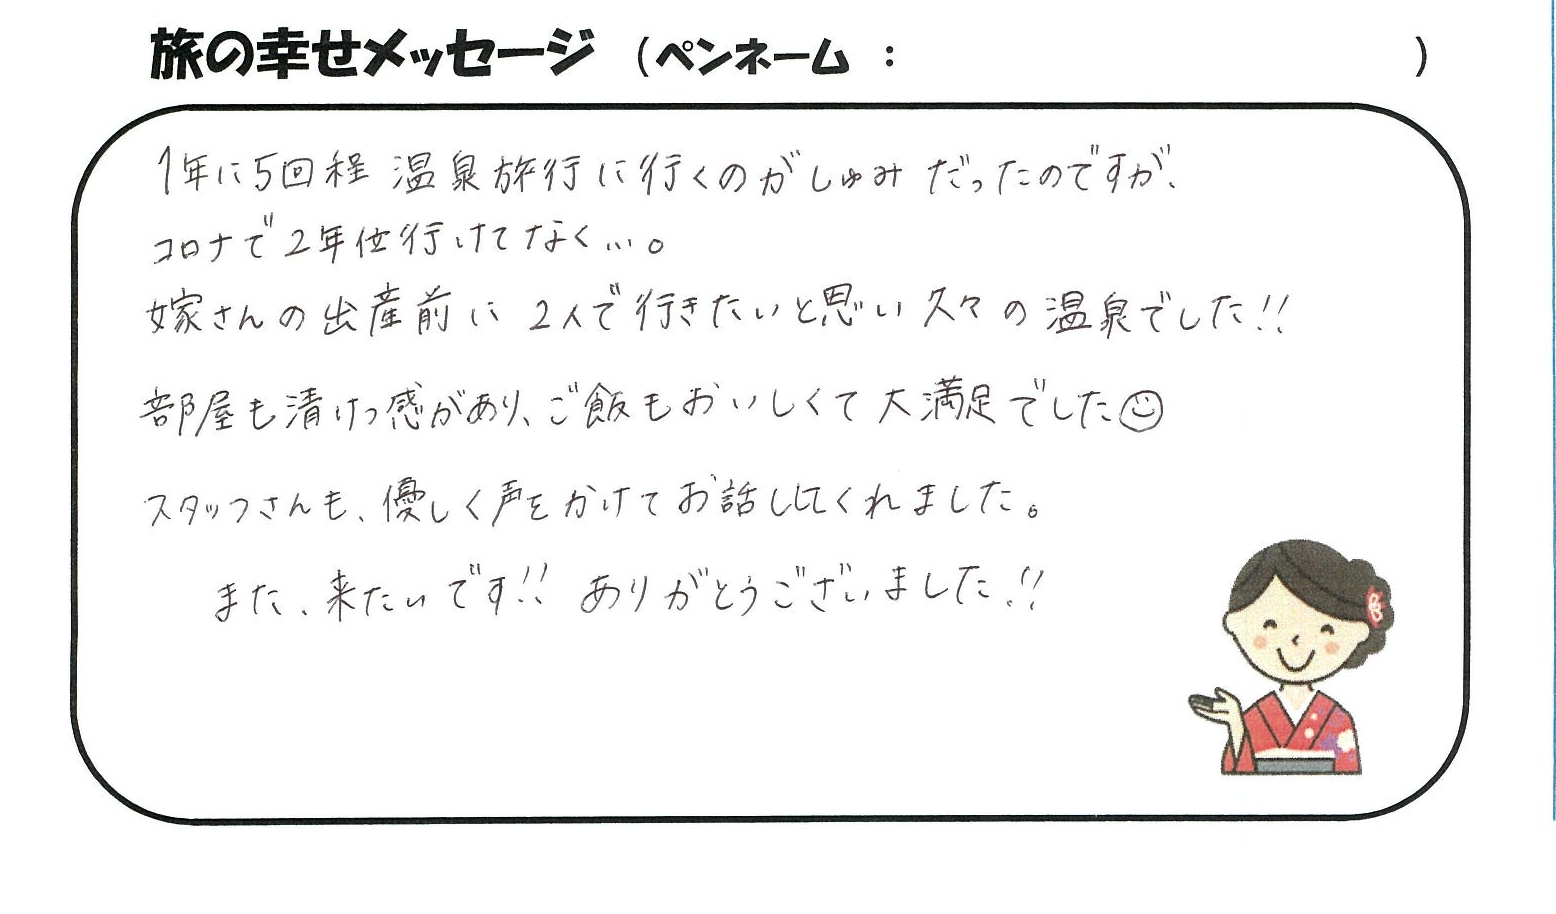 旅の幸せメッセージ （ペンネーム ： ）
1年に5回程 温泉旅行に行くのがしゅみ だったのですが、
コロナで2年位行けてなく…。
嫁さんの出産前に 2人で行きたいと思い 久々の温泉でした!!
部屋も清けつ感があり、ご飯もおいしくて大満足でした☺
スタッフさんも、優しく声をかけてお話ししてくれました。
また、来たいです!! ありがとうございました!!